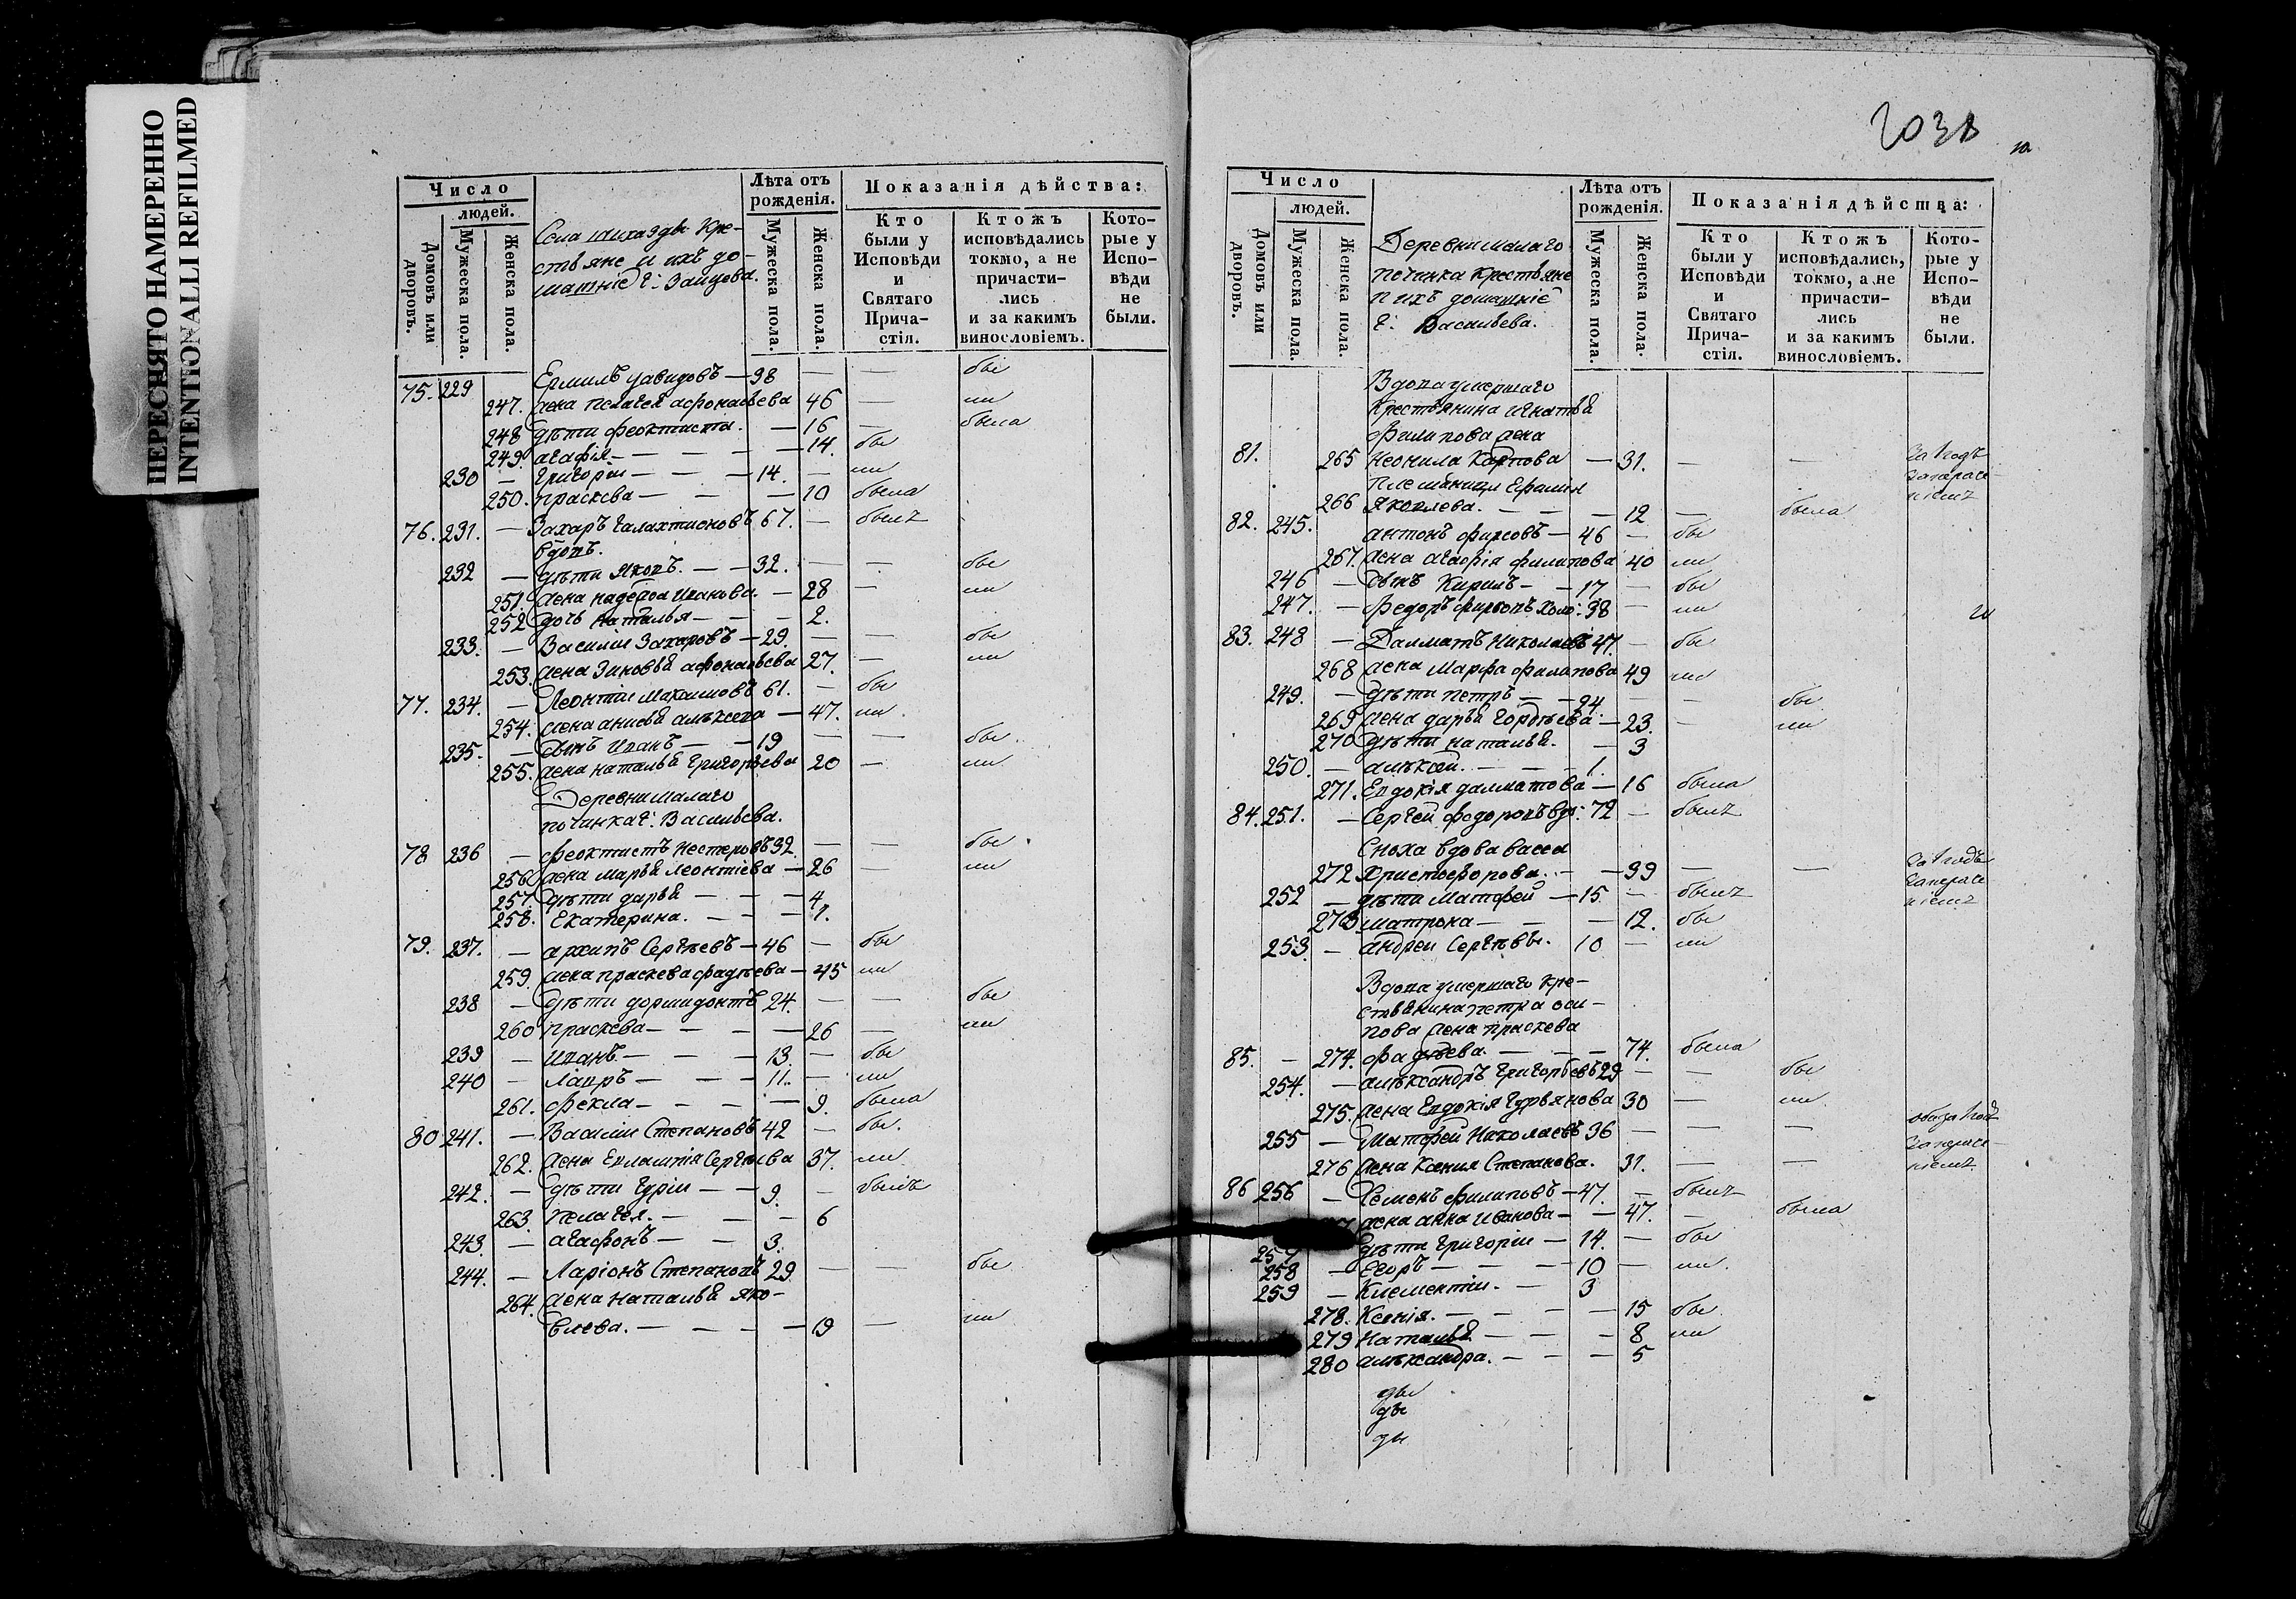 ПЕРЕСНЯТО НАМЕРЕННО
INTENTIONALLI REFILMED
Число
людей.
Домовъ или дворовъ.
Мужеска пола.
Женска пола.
Кре-
стьяне и ихъ до-
машніе г: Заицова.
Лѣта отъ рожденія.
Мужеска пола.
Женска пола.
Показанія дѣйства:
Кто были у Исповѣди и Святаго Прича- стія.
Ктожъ исповѣдались токмо, а не причасти- лись и за какимъ винословіемъ.
Кото- рые у Испо- вѣди не были.
75. 229 Ермилъ Давидовъ — 38 — — бы
247. жена Пелагея Афонасьева 46 — ли
248 дѣти Феоктиста. — 16 — была
249. Агафія — — — — 14. бы
230 — Григоріи — — — 14. — ли
250. Праскева — — — 10 была
76. 231. — Захаръ Галахтионовъ 67. — былъ
вдовъ.
232 — дѣти Яковъ. — — 32. — — бы
251. жена Надежда Иванова. — 28 — ли
252 дочь Наталья — — — 2.
233. — Василіи Захаровъ — 29. — — бы
253. жена Зиновья Афонасьева 27. — ли
77. 234. — Леонтіи Макаимовъ 61. — бы
254. жена Анисья Алѣксева — 47. ли
235. — сынъ Иванъ — — 19 — — бы
255. жена Наталья Григорьева 20 — ли
Деревни Малаго
починка г: Васильева.
78 236 — Феоктистъ Нестеровъ 32. — — бы
256 жена Марья Леонтіева — 26 — ли
257. дѣти Дарья — — — 4
258. Екатерина. — — — 1.
79. 237. — Архипъ Сергѣевъ — 46 — бы
259. жена Праскева Фадѣева — 45 ли
238 — дѣти Дормидонтъ 24. — — бы
260 Праскева — — — — 26 — ли
239 — Иванъ — — — 13. — бы
240 — Лавръ — — — 11. — ли
261. Фекла — — — — 9. была
80 241. — Василіи Степановъ 42 — бы.
262. жена Евлампія Сергѣева 37. ли
242. — дѣти Гуріи — — 9. — былъ
263. Пелагея. — — — 6
243. — Агафонъ — — 3.
244. — Ларіонъ Степановъ 29. — — бы
264. жена Наталья Яко-
влева. — — — — 19 — ли
203
Число
людей.
Домовъ или дворовъ.
Мужеска пола.
Женска пола.
Деревни Малаго
починка крестьяне
и ихъ домашніе
г: Васильева.
Лѣта отъ рожденія.
Мужеска пола.
Женска пола.
Показанія дѣйства:
Кто были у Исповѣди и Святаго Прича- стія.
Ктожъ исповѣдались, токмо, а не причасти- лись и за какимъ винословіемъ.
Кото- рые у Испо- вѣди не были.
Вдова умершаго
крестьянина Игнатья
Филипова жена
81. 265 Неонила Карпова — 31. — —
племянница
266 Яковлева. — — — 12 — была
82. 245. Антонъ Фирсовъ — 46 — бы
267. жена Агафія Филипова 40 ли
246 — сынъ Кирилъ — — 17 — бы
247. — Федоръ Фирсовъ холо: 38 — ли
83. 248 — Далматъ Николаевъ 47. — бы
268 жена Марфа Филипова 49 ли
249. — дѣти Петръ — — 24 — — бы
269 жена Дарья Гордѣева — 23. — ли
270 дѣти Наталья. — 3
250. — Алѣксѣи. — — — 1.
271. Евдокія Далматова — 16 была
84. 251. — Сергѣй Федоровъ вдо: 72 — былъ
Сноха вдова Васса
272 Христофорова. — — 39 — —
252 — дѣти Матфей — 15 — былъ
273 Матрона — — — 12. бы
253. — Андреи Сергѣевы. 10 — ли
Вдова умершаго кре-
стьянина Петра Оси-
пова жена Праскева
85. — 274. Фадѣева. — — — 74. была
254. — Алѣксандръ Григорьевъ 29 — — бы
275. жена Евдокія Гурьянова 30 — ли
255 — Матфей Николаевъ 36 — — —
276 жена Ксения Степанова. 31. — —
86 256 — Семенъ Филиповъ — 47. — былъ
жена Анна Иванова — — 47. — была
257 дѣти Григоріи — 14. — бы
258 — Егоръ — — — 10 — ли.
259 — Клементіи. — 3
278. Ксенія. — — — — 15 бы
279 Наталья — — — 8 ли
280 Алѣксандра. — — — 5